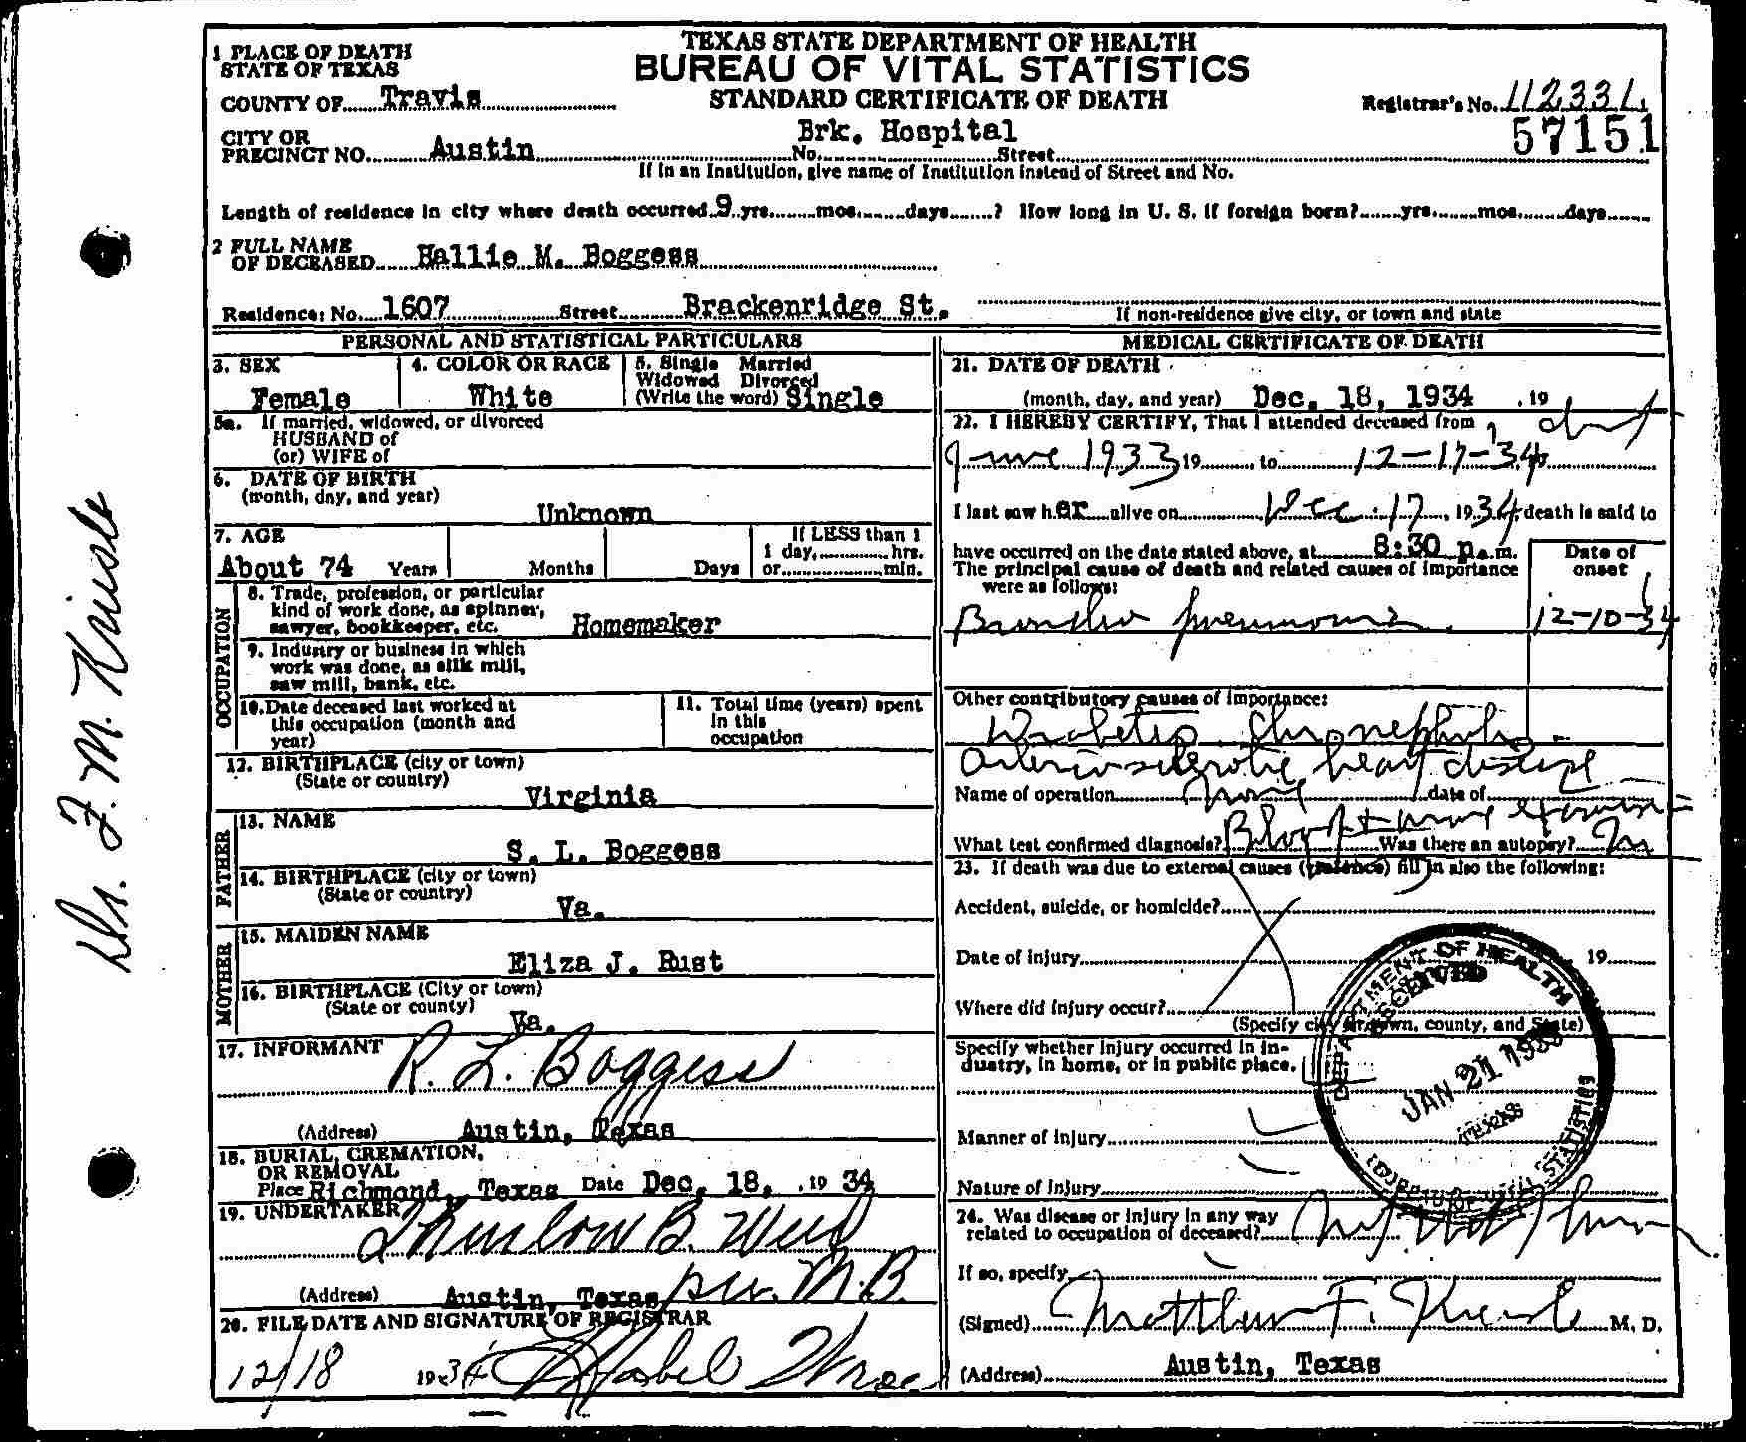 TEXAS STATE DEPARTMENT OF HEALTH
BUREAU OF VITAL STATISTICS
STANDARD CERTIFICATE OF DEATH
1 PLACE OF DEATH
STATE OF TEXAS
COUNTY OF Travis
Registrar's No. 112331
57151
CITY OR PRECINCT NO. Austin No. Brk. Hospital Street
If in an Institution, give name of Institution instead of Street and No.
Length of residence in city where death occurred 9 yrs. mos. days ? How long in U. S. if foreign born? yrs. mos. days
2 FULL NAME OF DECEASED Hallie M. Boggess
Residence: No. 1607 Street Brackenridge St.
If non-residence give city, or town and state
PERSONAL AND STATISTICAL PARTICULARS
3. SEX Female
4. COLOR OR RACE White
5. Single Married Widowed Divorced (Write the word) Single
5a. If married, widowed, or divorced
HUSBAND of
(or) WIFE of
6. DATE OF BIRTH
(month, day, and year) Unknown
7. AGE About 74 Years Months Days If LESS than 1
1 day, hrs.
or min.
OCCUPATION
8. Trade, profession, or particular
kind of work done, as spinner,
sawyer, bookkeeper, etc. Homemaker
9. Industry or business in which
work was done, as silk mill,
saw mill, bank, etc.
10. Date deceased last worked at
this occupation (month and
year)
11. Total time (years) spent
in this
occupation
12. BIRTHPLACE (city or town)
(State or country) Virginia
FATHER
13. NAME S. L. Boggess
14. BIRTHPLACE (city or town)
(State or country) Va.
MOTHER
15. MAIDEN NAME Eliza J. Rust
16. BIRTHPLACE (City or town)
(State or county) Va.
17. INFORMANT R. L. Boggess
(Address) Austin, Texas
18. BURIAL, CREMATION,
OR REMOVAL
Place Richmond, Texas Date Dec. 18, , 19 34
19. UNDERTAKER Thurlow B. Weed
per. M.B.
(Address) Austin, Texas
20. FILE DATE AND SIGNATURE OF REGISTRAR
12/18 1934 Mabel
MEDICAL CERTIFICATE OF DEATH
21. DATE OF DEATH
(month, day, and year) Dec. 18, 1934 , 19
22. I HEREBY CERTIFY, That I attended deceased from
June 1933 19 , to 12-17-34
I last saw her alive on Dec. 17, 1934, death is said to
have occurred on the date stated above, at 8:30 p.m.
The principal cause of death and related causes of importance
were as follows:
Date of
onset
Broncho pneumonia 12-10-34
Other contributory causes of importance:
Diabetes. Chr. nephritis
Arteriosclerotic heart disease
Name of operation None date of
What test confirmed diagnosis? Blood + urine Was there an autopsy? No
23. If death was due to external causes (violence) fill in also the following:
Accident, suicide, or homicide?
Date of injury 19
Where did injury occur?
(Specify city or town, county, and State)
Specify whether injury occurred in in-
dustry, in home, or in public place.
Manner of Injury
Nature of Injury
24. Was disease or injury in any way
related to occupation of deceased?
If so, specify
(Signed) Matthew F. Kreisle M. D.
(Address) Austin, Texas
DEPARTMENT OF HEALTH
RECEIVED
JAN 21
TEXAS
Dr. F. M. Kreisle